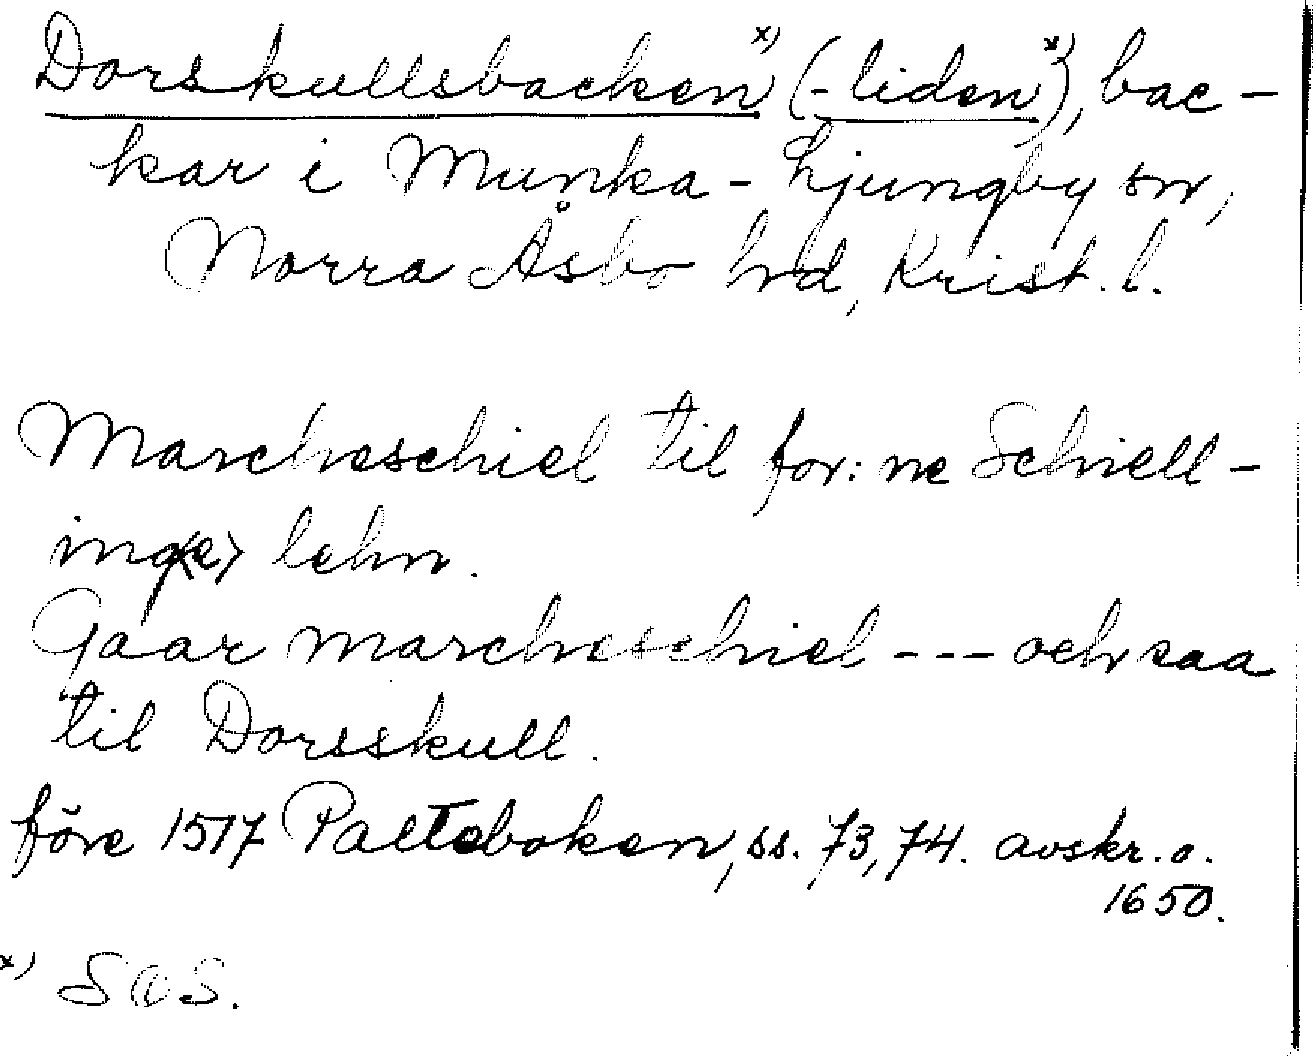 Dorskullsbacken x) (-liden x)), bac-
kar i Munka-Ljungby sn,
Norra Åsbo hd, Krist. l.
Marcheschiel til for:ne Schiell-
ing<e> lehn.
Gaar marcheschiel --- och saa
til Dorsskull.
före 1517 Palteboken, ss. 73, 74. avskr. o.
1650.
x) SOS.